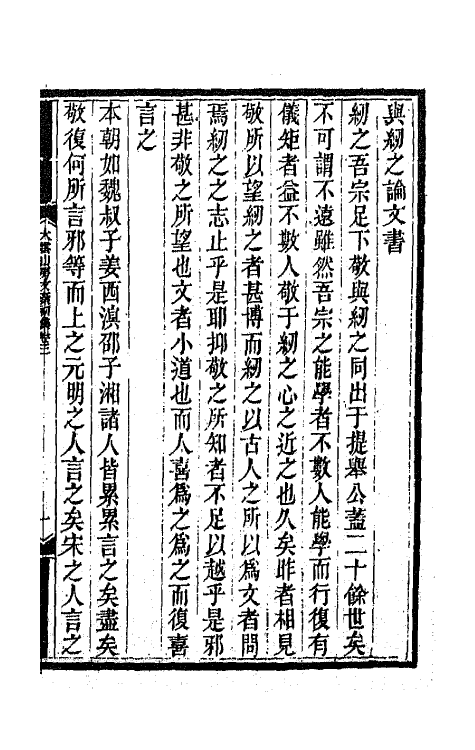 與紉之論文書
紉之吾宗足下敬與紉之同出于提舉公葢二十餘世矣
不可謂不遠雖然吾宗之能學者不數人能學而行復有
儀矩者益不數人敬于紉之心之近之也久矣昨者相見
敬所以望紉之者甚博而紉之以古人之所以爲文者問
焉紉之之志止乎是耶抑敬之所知者不足以越乎是邪
甚非敬之所望也文者小道也而人喜爲之爲之而復喜
言之
本朝如魏叔子姜西溟邵子湘諸人皆累累言之矣盡矣
敬復何所言邪等而上之元明之人言之矣宋之人言之
大雲山房文稾初集卷三
一